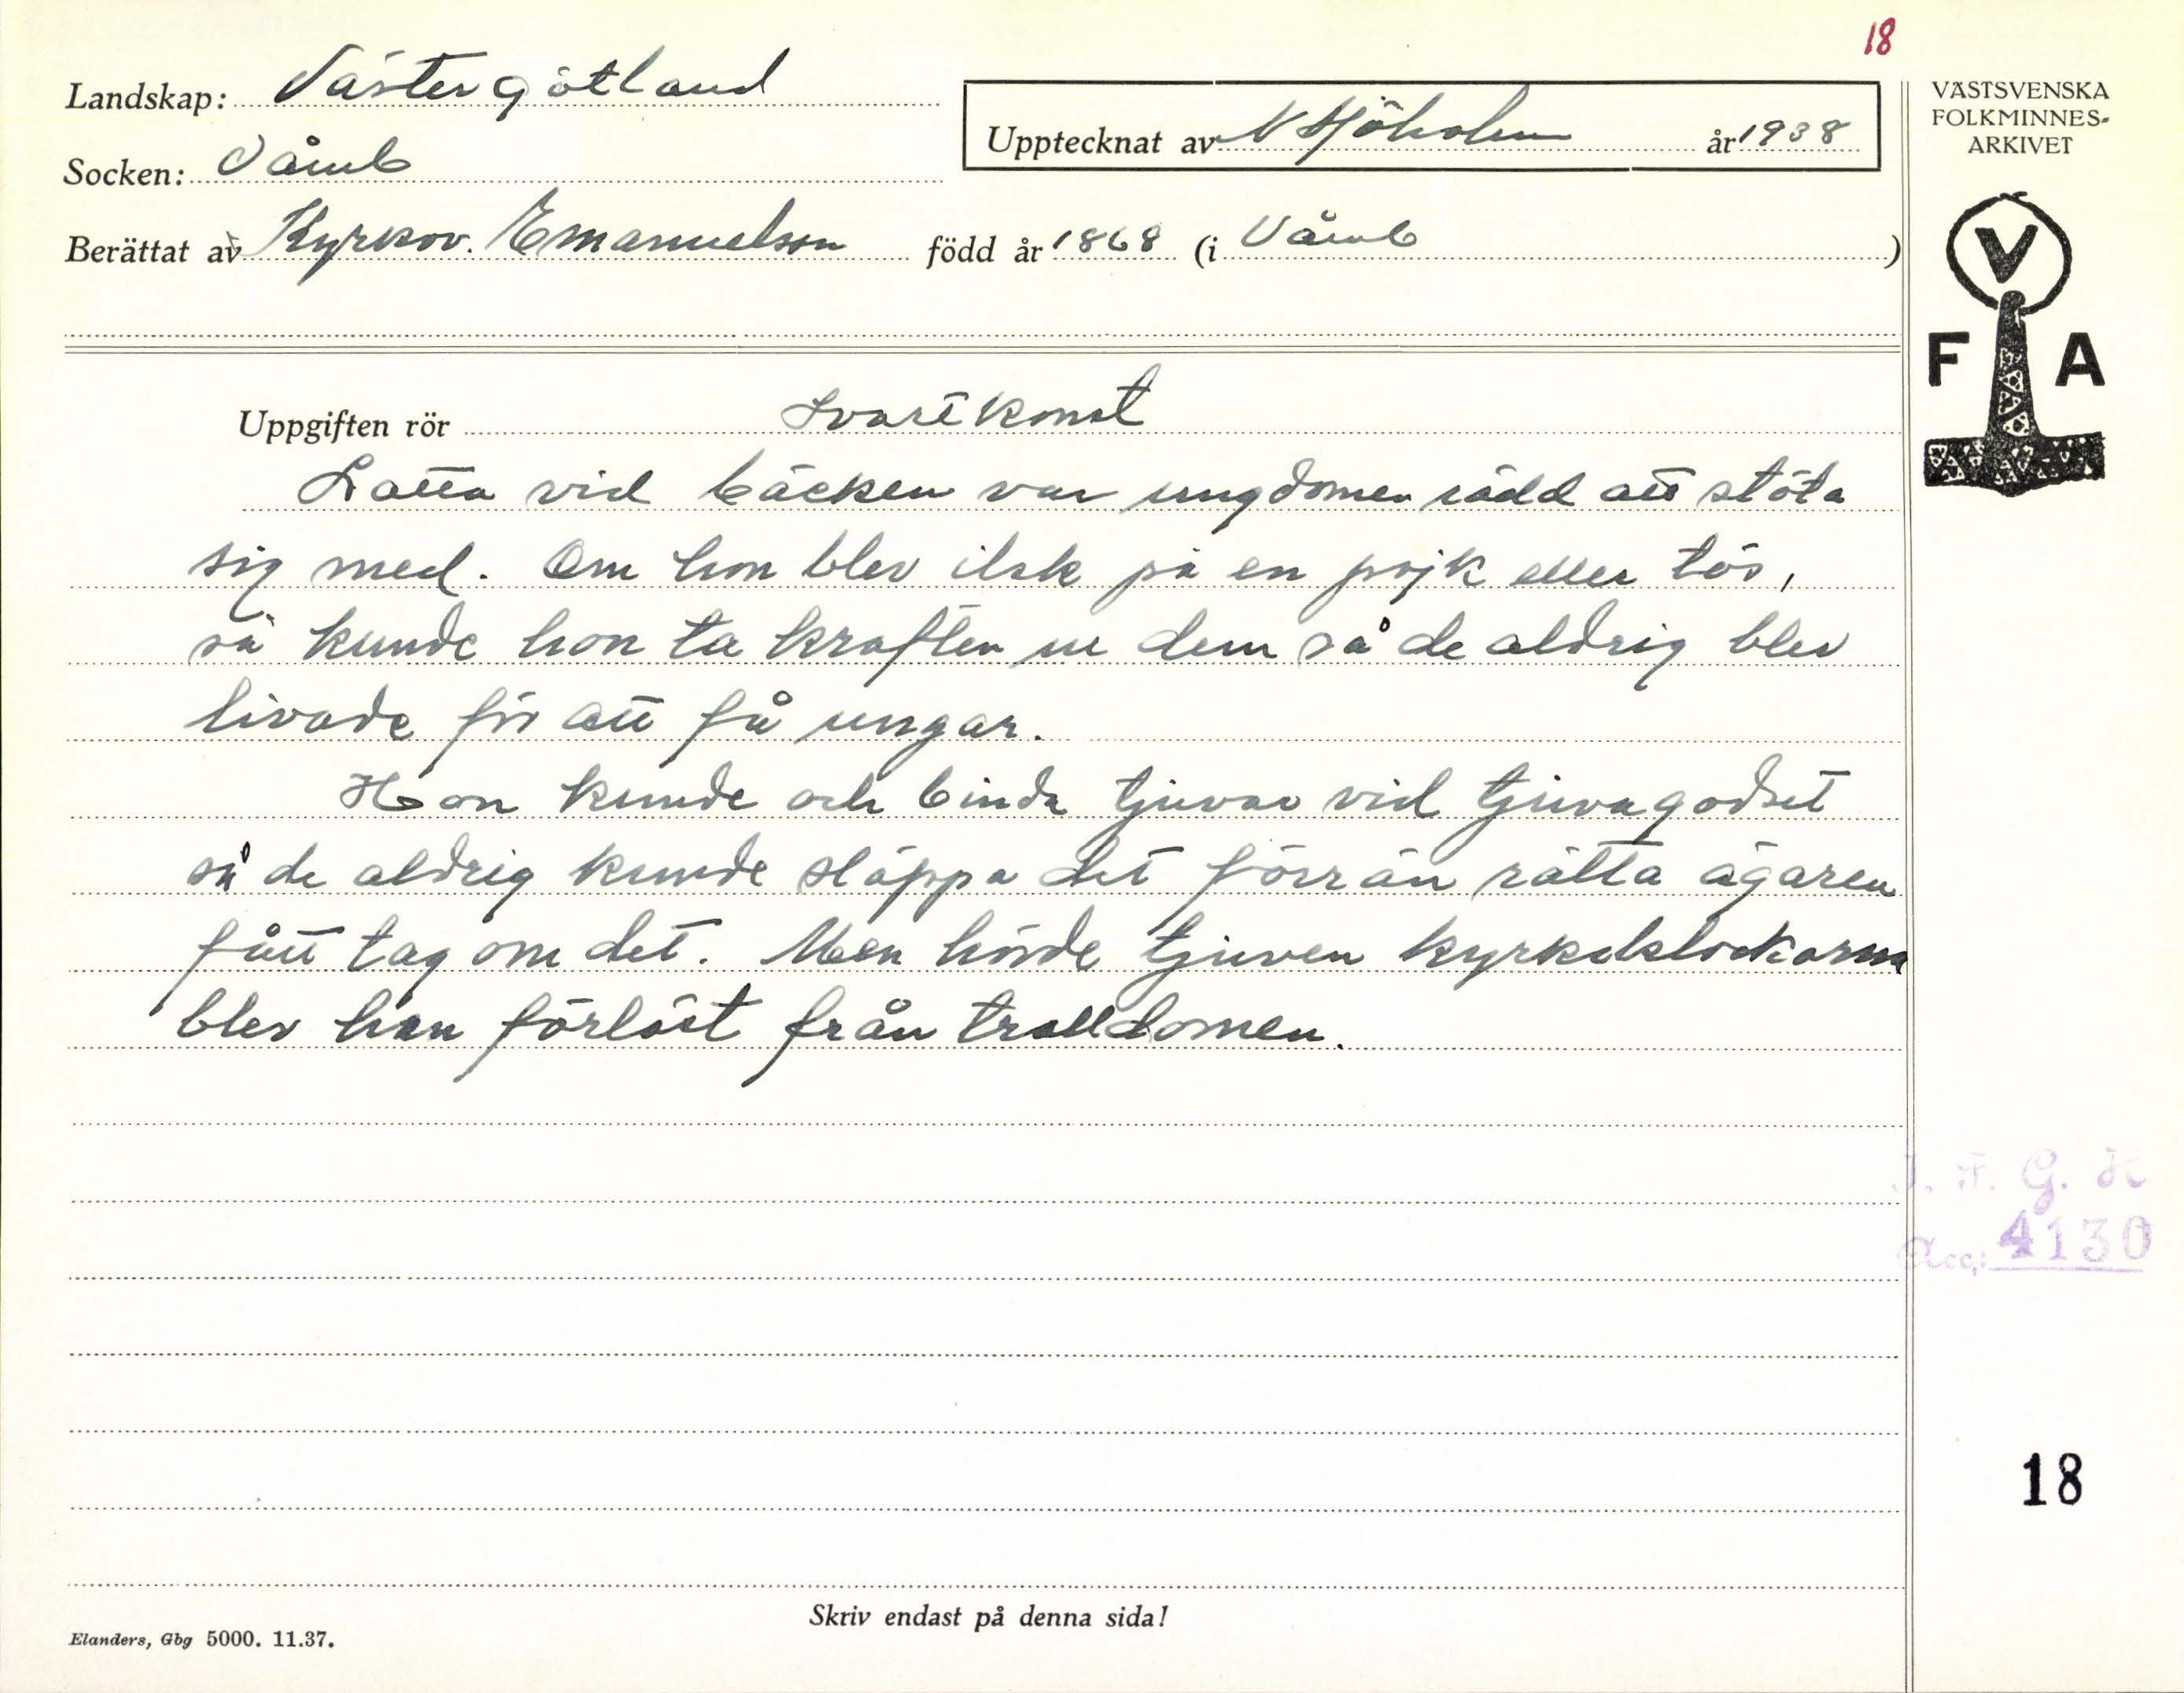 18
Landskap: Västergötland
Upptecknat av N Sjöholm år 1938
Socken: Våmb
Berättat av Kyrkov. Emanuelson född år 1868 (i Våmb)
VÄSTSVENSKA
FOLKMINNES-
ARKIVET
V
F A
Uppgiften rör Svartkonst
Lotta vid bäcken var ungdomen rädd att stöta
sig med. Om hon blev ilsk på en pojk eller tös,
så kunde hon ta kraften ur dem så de aldrig blev
livade för att få ungar.
Hon kunde och binda tjuvar vid tjuvagodset
så de aldrig kunde släppa det förrän rätta ägaren
fått tag om det. Men hörde tjuven kyrkoklockorna
blev han förlöst från trolldomen.
I. F. G. H
Acc: 4130
18
Skriv endast på denna sida!
Elanders, Gbg 5000. 11.37.